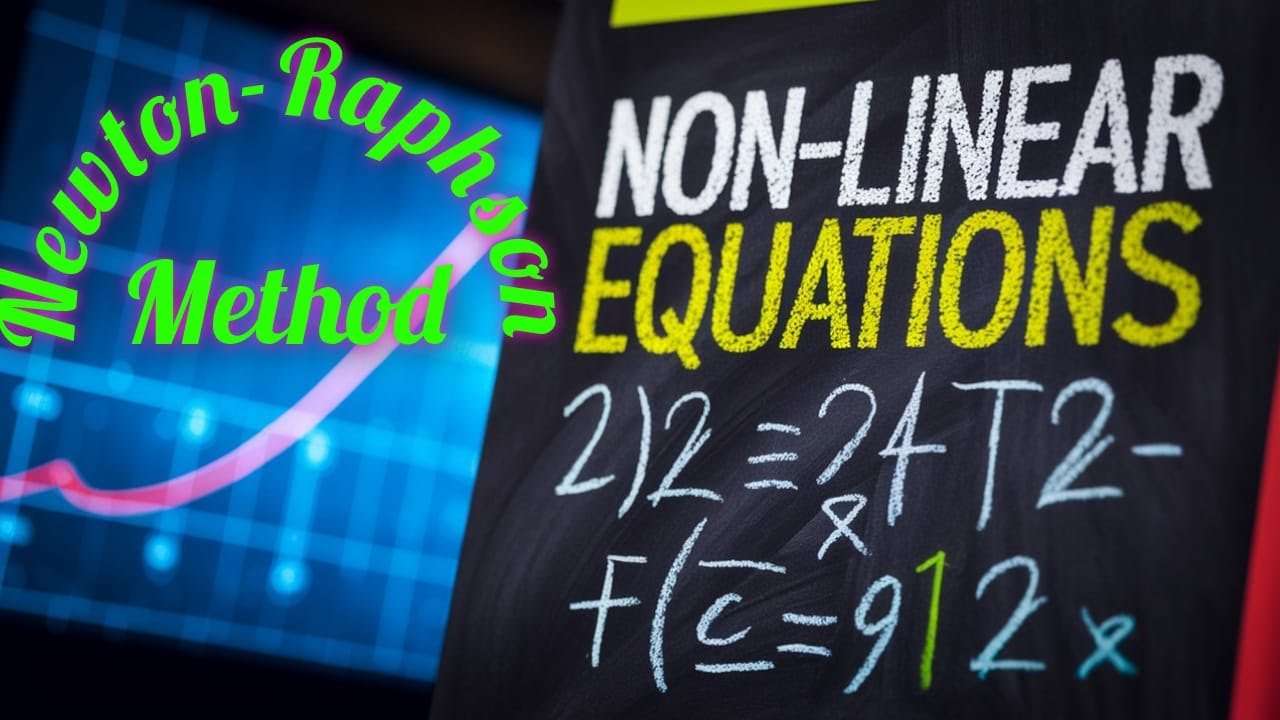 Newton-Raphson
Method
NON-LINEAR
EQUATIONS
2)2 ≡ ?4T2-
x
F(c = 912x